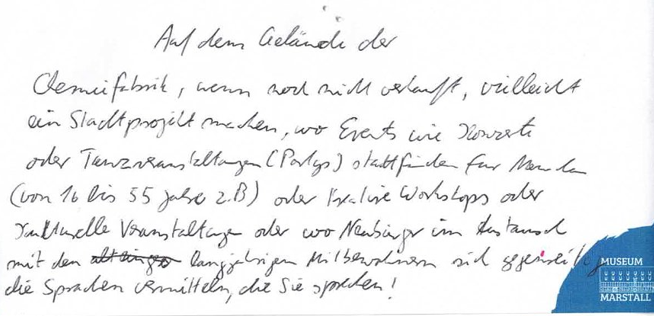 Auf dem Gelände der
Chemiefabrik, wenn noch nicht verkauft, vielleicht
ein Stadtprojekt machen, wo Events wie Konzerte
oder Tanzveranstaltungen (Partys) stattfinden für
(von 16 bis 55 Jahre z.B) oder kreative Workshops oder
kulturelle Veranstaltungen oder wo Neubürger im Austausch
mit den langjährigen Mitbewohnern sich gegenseitig
die Sprachen vermitteln, die Sie sprechen!
MUSEUM
MARSTALL